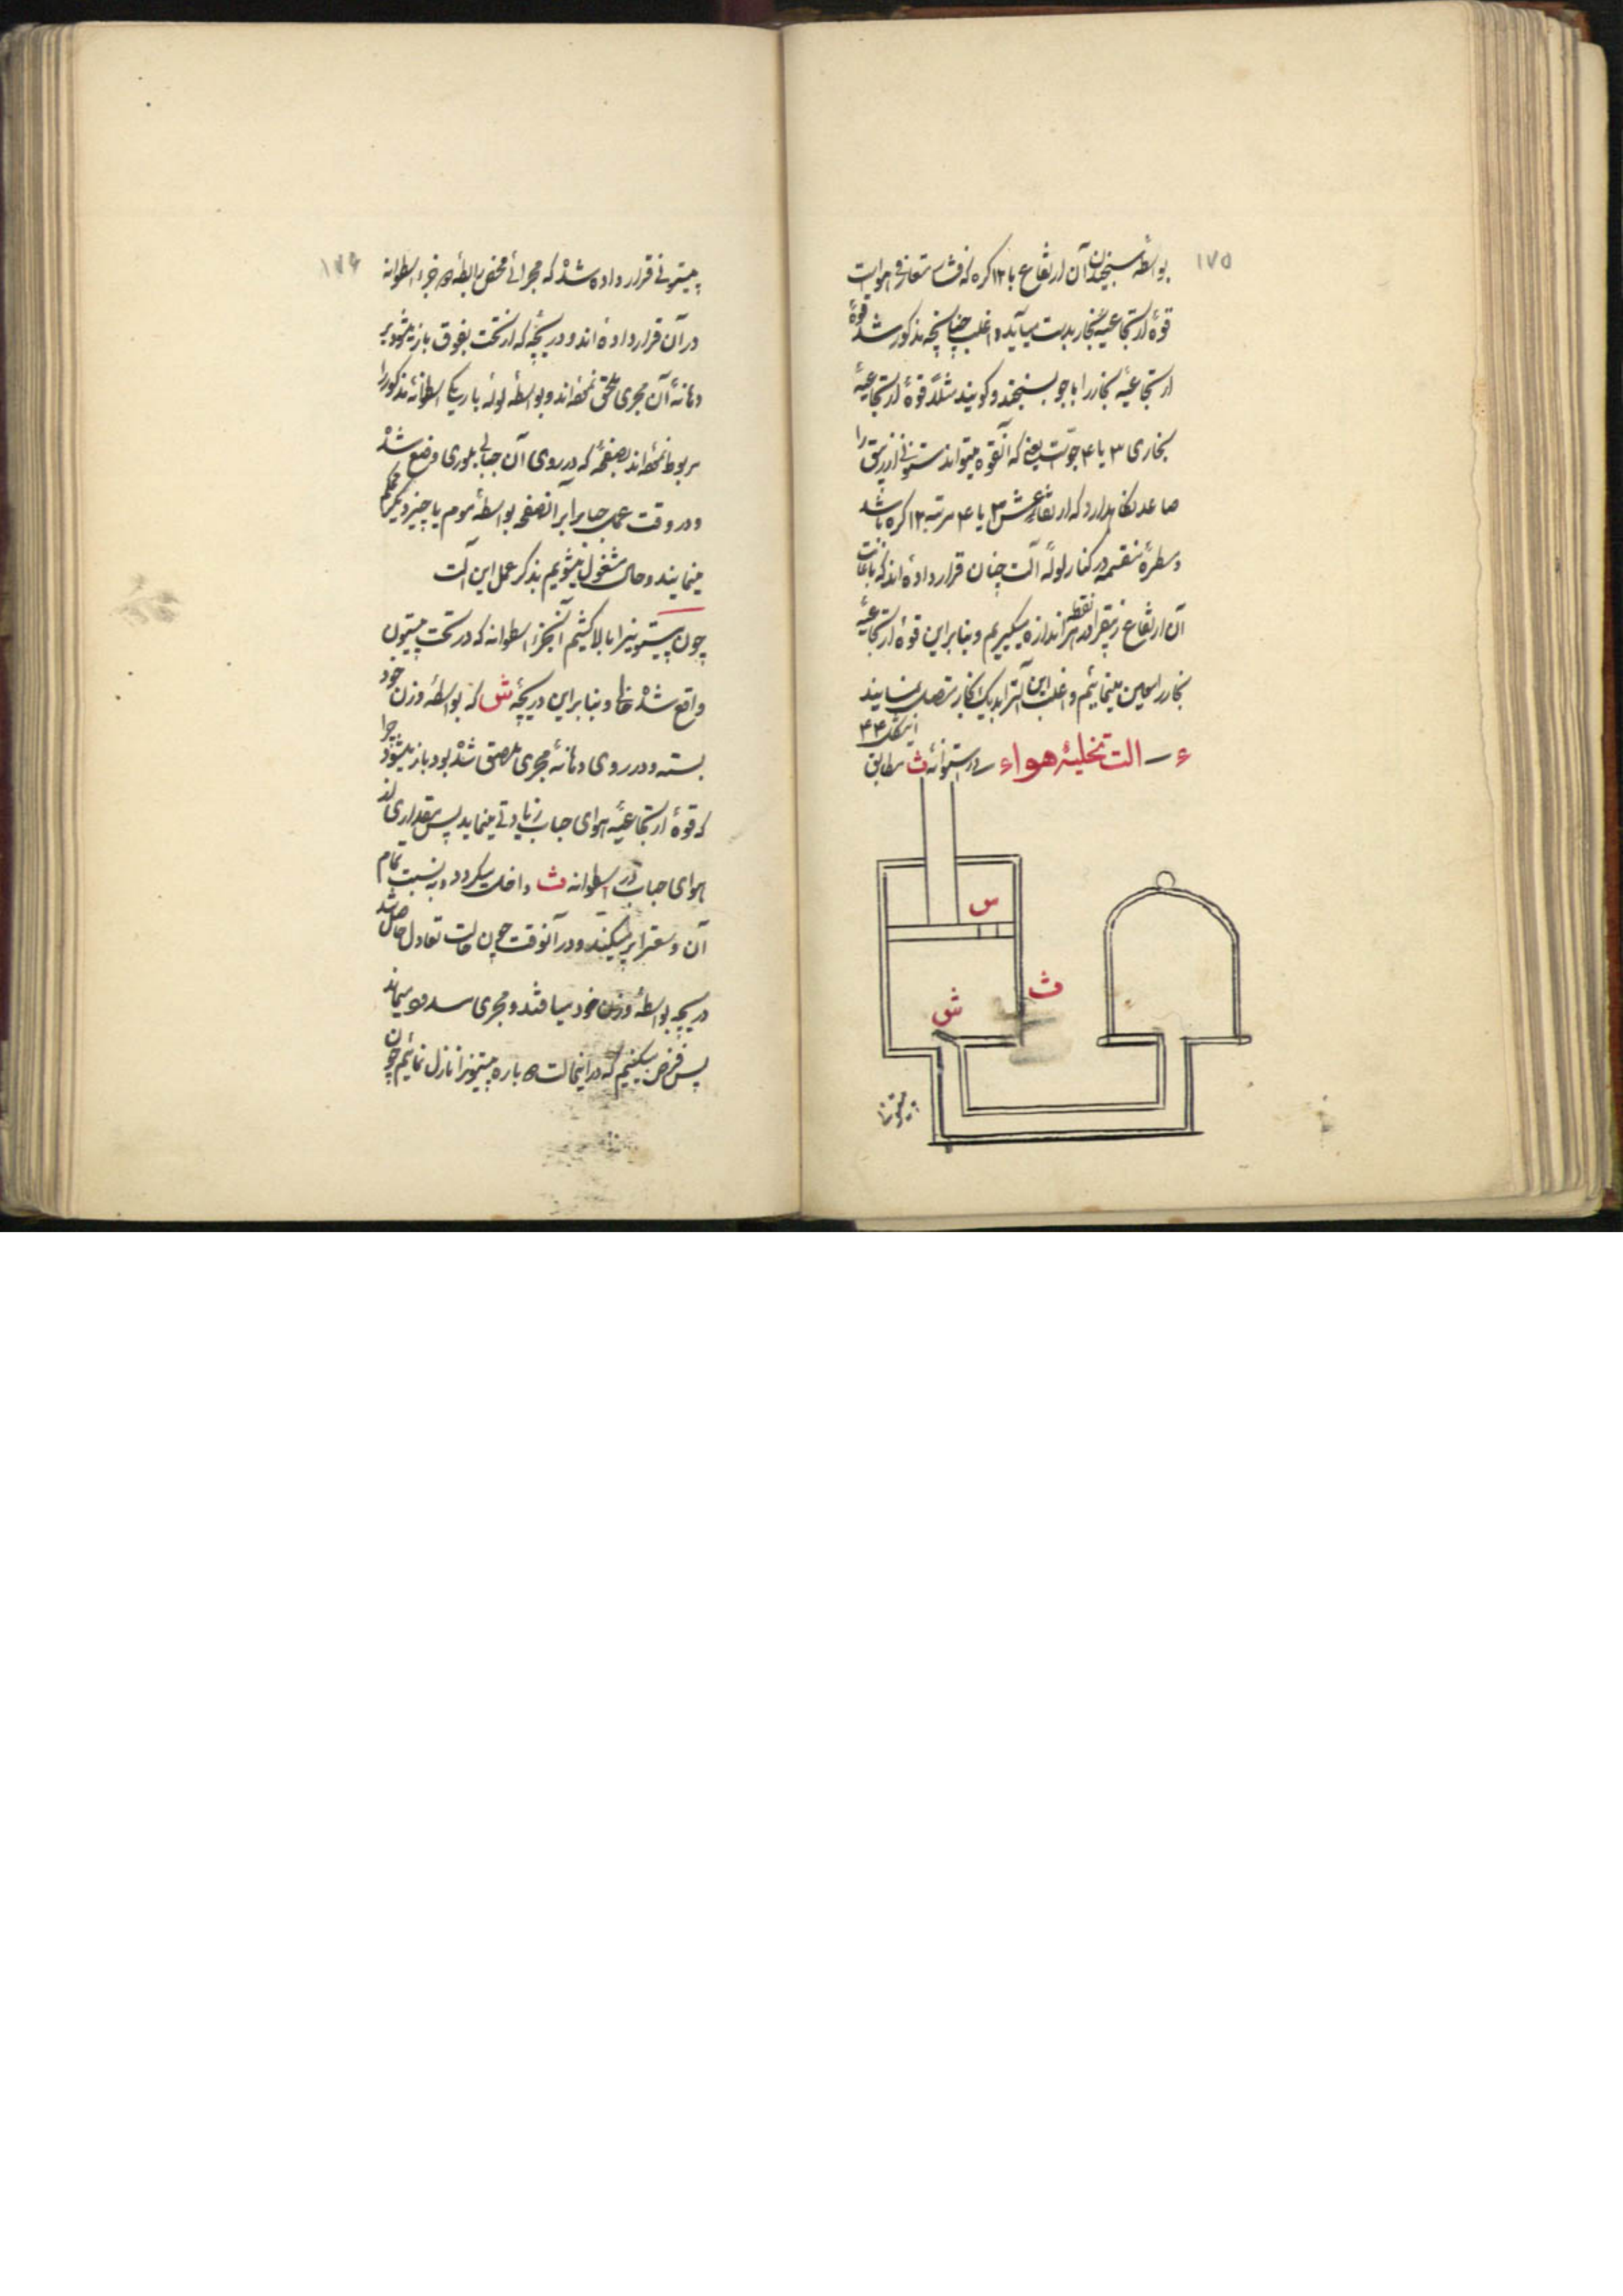 ۱۷۵
بواسطهٔ سنجیدن آن ارتفاع با ۱۲ گره که فشار متعارفی هواست
قوهٔ ارتجاعیهٔ بخار بدست میآید و اغلب چنانچه مذکور شد قوهٔ
ارتجاعیهٔ بخار را با جو بسنجند و گویند مثلاً قوهٔ ارتجاعیهٔ
بخاری ۳ یا ۴ جوّست یعنی که آنقوه میتواند ستونی از زیبق را
صاعد نگاهدارد که ارتفاعش ۳ یا ۴ مرتبه ۱۲ گره باشد
و سطرهٔ منقسمه در کنار لولهٔ آلت چنان قرار داده اند که باعانت
آن ارتفاع زیبقرا در هر نقطه اندازه میگیریم و بنابراین قوهٔ ارتجاعیهٔ
بخار را معین مینمائیم و اغلب این آلترا بدیک بخار متصل نمایند
ء ـ الت تخلیهٔ هواء ـ در استوانهٔ ث مطابق
شکل ۴۴
س
ث
ش
۱۷۶
پیستونی قرار داده شده که مجرائی مخصوص رابطهٔ دو جزء اسطوانه
در آن قرار داده اند و دریچهٔ که از تحت بفوق باز میشود بر
دهانهٔ آن مجری ملحق نموده اند و بواسطهٔ لولهٔ باریکی اسطوانهٔ مذکور را
مربوط نموده اند بصفحهٔ که در روی آن حبابی بلوری وضع شده
و در وقت عمل حباب را بر آنصفحه بواسطهٔ موم یا چیز دیگر محکم
مینمایند و حال مشغول میشویم بذکر عمل این آلت
چون پیستونرا بالا کشیم آنجزء اسطوانه که در تحت پیستون
واقع شده خالی و بنابراین دریچهٔ ش که بواسطهٔ وزن خود
بسته و در روی دهانهٔ مجری ملصق شده بود باز میشود چرا
که قوهٔ ارتجاعیهٔ هوای حباب زیادتی مینماید پس مقداری از
هوای حباب در اسطوانه ث داخل میگردد و به نسبت تمام
آن وسعترا پر میکند و در آنوقت چون حالت تعادل حاصل شد
دریچه بواسطهٔ وزن خود میافتد و مجری مسدود میماند
پس فرض میکنیم که در اینحالت دوباره پیستونرا نازل نمائیم چون